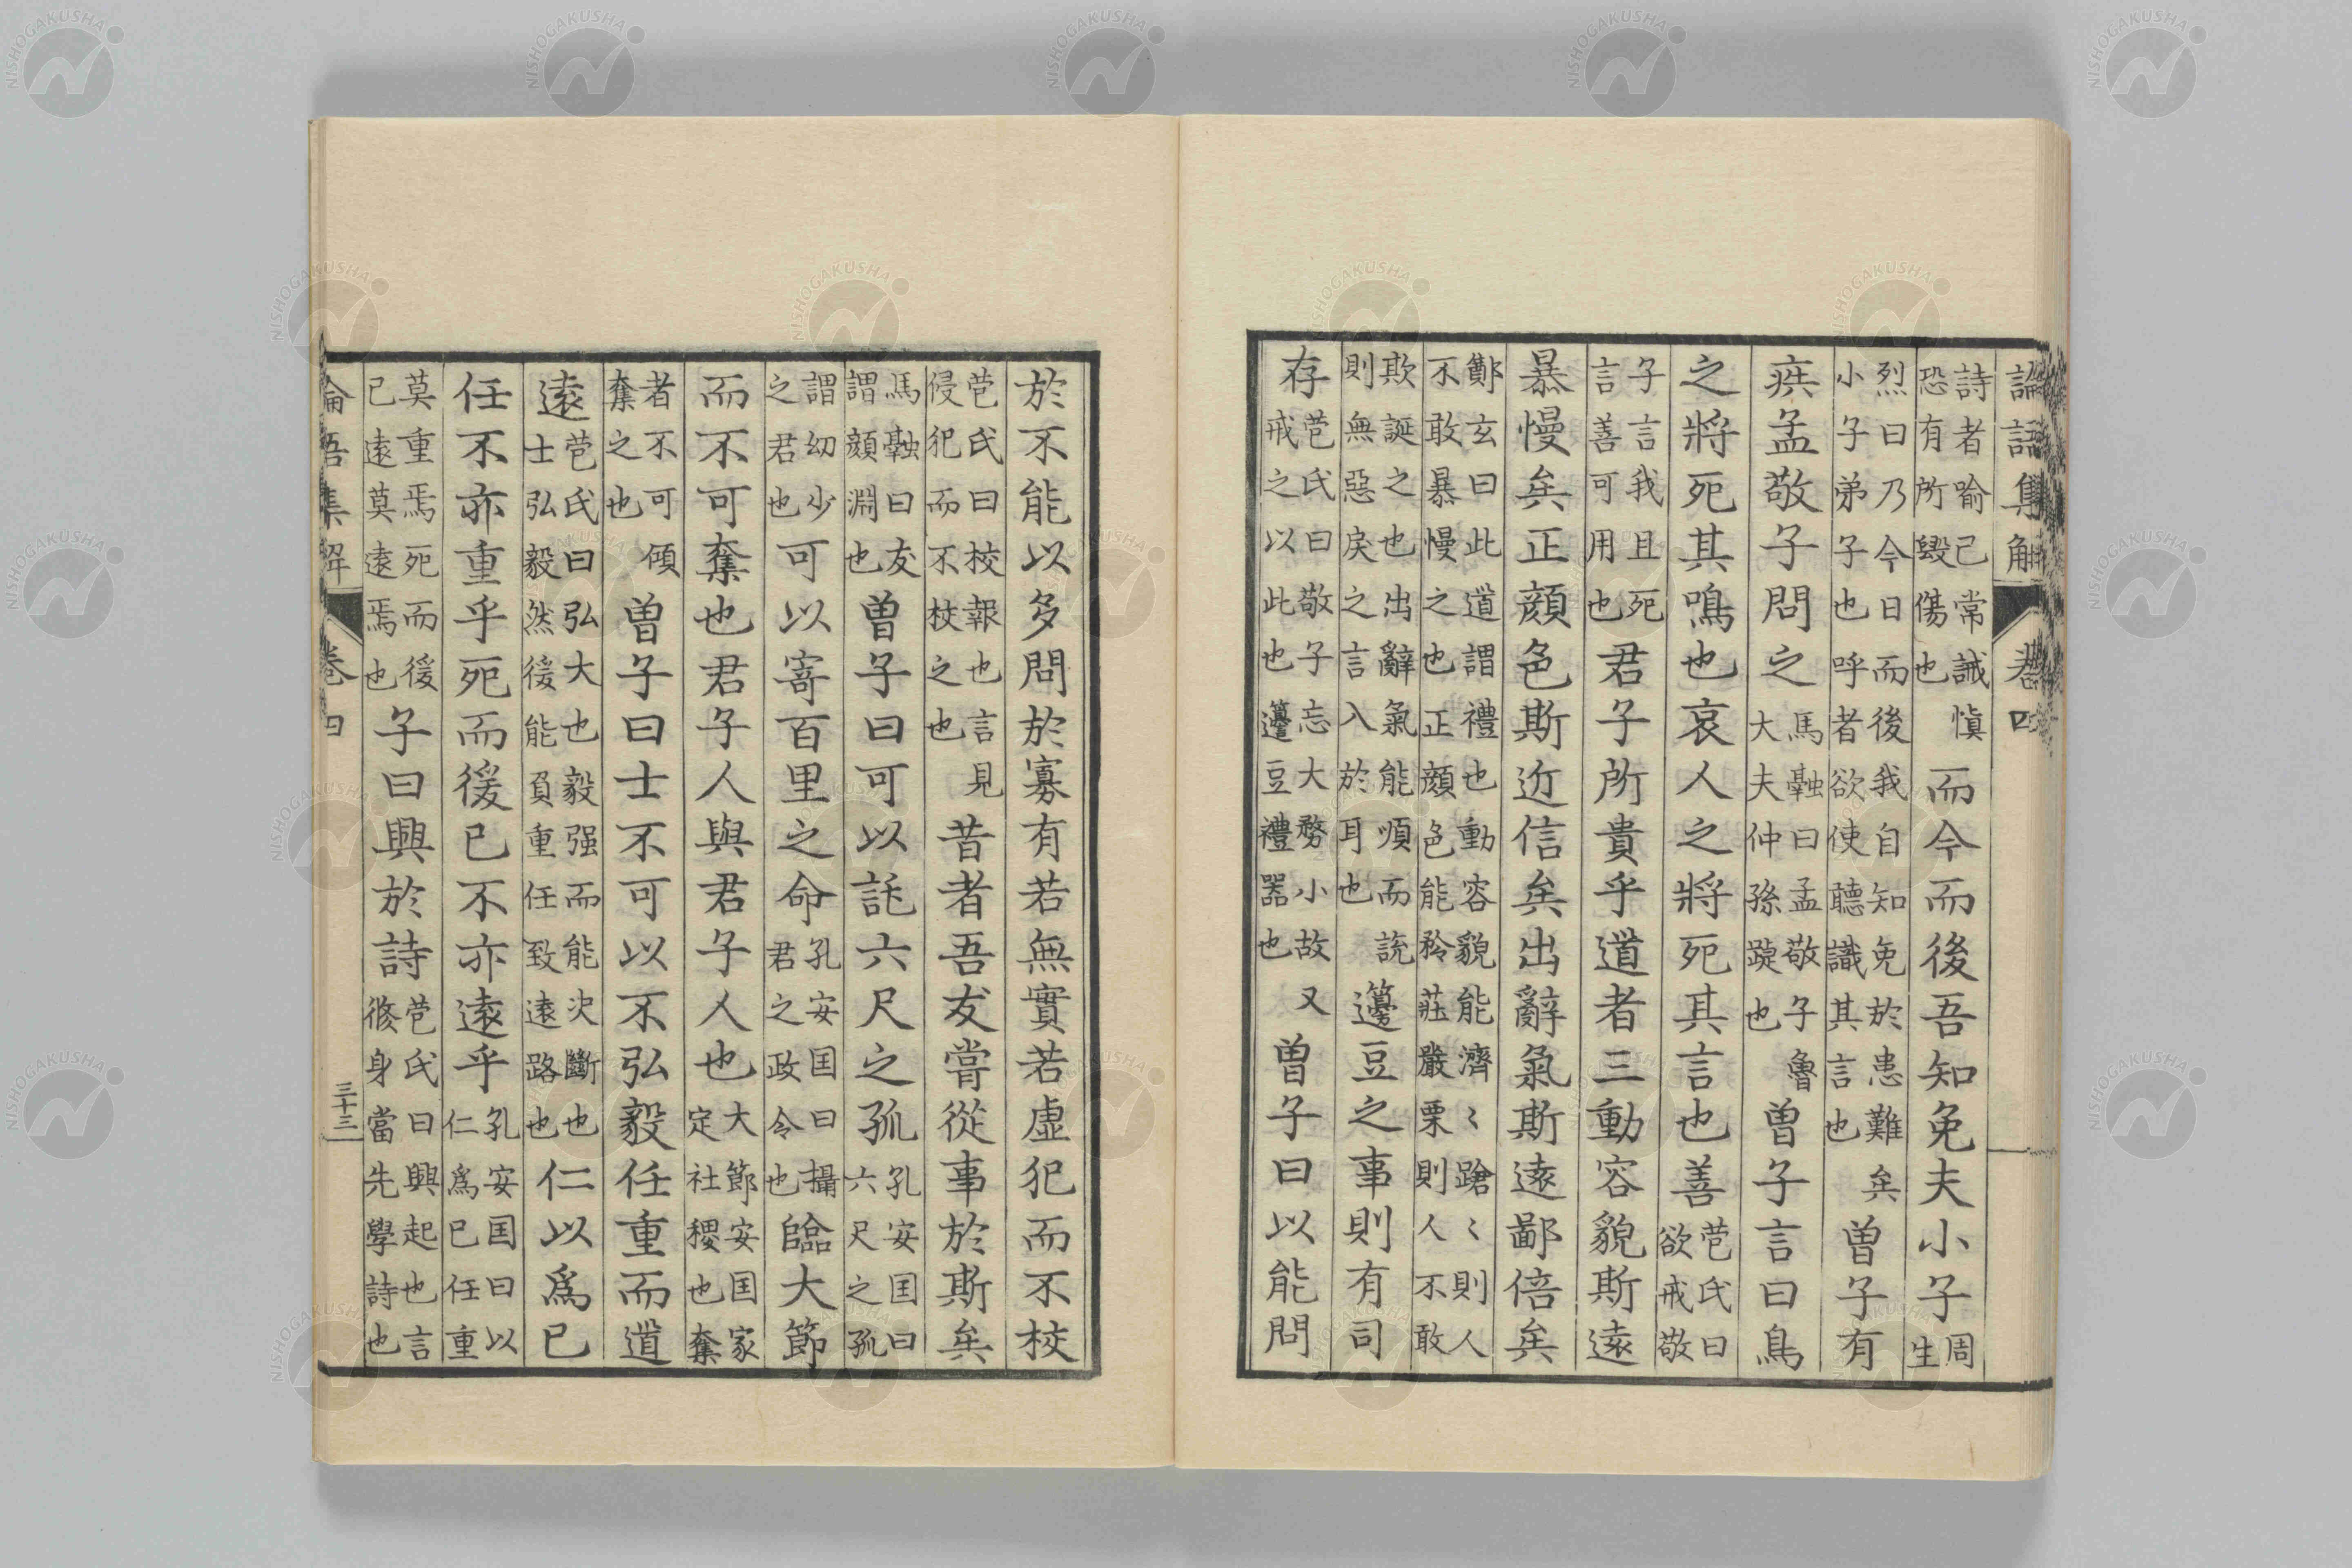 論語集解 卷四
詩者喻己常誡慎恐有所毀傷也而今而後吾知免夫小子周生
烈曰乃今日而後我自知免於患難矣小子弟子也呼者欲使聽識其言也曽子有
疾孟敬子問之馬融曰孟敬子魯大夫仲孫踺也曽子言曰鳥
之將死其鳴也哀人之將死其言也善苞氏曰欲戒敬
子言我且死言善可用也君子所貴乎道者三動容貌斯遠
暴慢矣正顏色斯近信矣出辭氣斯遠鄙倍矣
鄭玄曰此道謂禮也動容貌能濟〻蹌〻則人不敢暴慢之也正顏色能矜莊嚴栗則人不敢
欺誕之也出辭氣能順而説則無惡戾之言入於耳也籩豆之事則有司
存苞氏曰敬子忘大務小故又戒之以此也籩豆禮器也曽子曰以能問
於不能以多問於寡有若無實若虛犯而不校
苞氏曰校報也言見侵犯而不校之也昔者吾友嘗從事於斯矣
馬融曰友謂顏淵也曽子曰可以託六尺之孤孔安国曰六尺之孤
謂幼少之君也可以寄百里之命孔安国曰攝君之政令也臨大節
而不可奪也君子人與君子人也大節安国家定社稷也奪
者不可傾奪之也曽子曰士不可以不弘毅任重而道
遠苞氏曰弘大也毅强而能决斷也士弘毅然後能負重任致遠路也仁以爲己
任不亦重乎死而後已不亦遠乎孔安国曰以仁爲己任重
莫重焉死而後已遠莫遠焉也子曰興於詩苞氏曰興起也言修身當先學詩也
論語集解 卷四 三十三